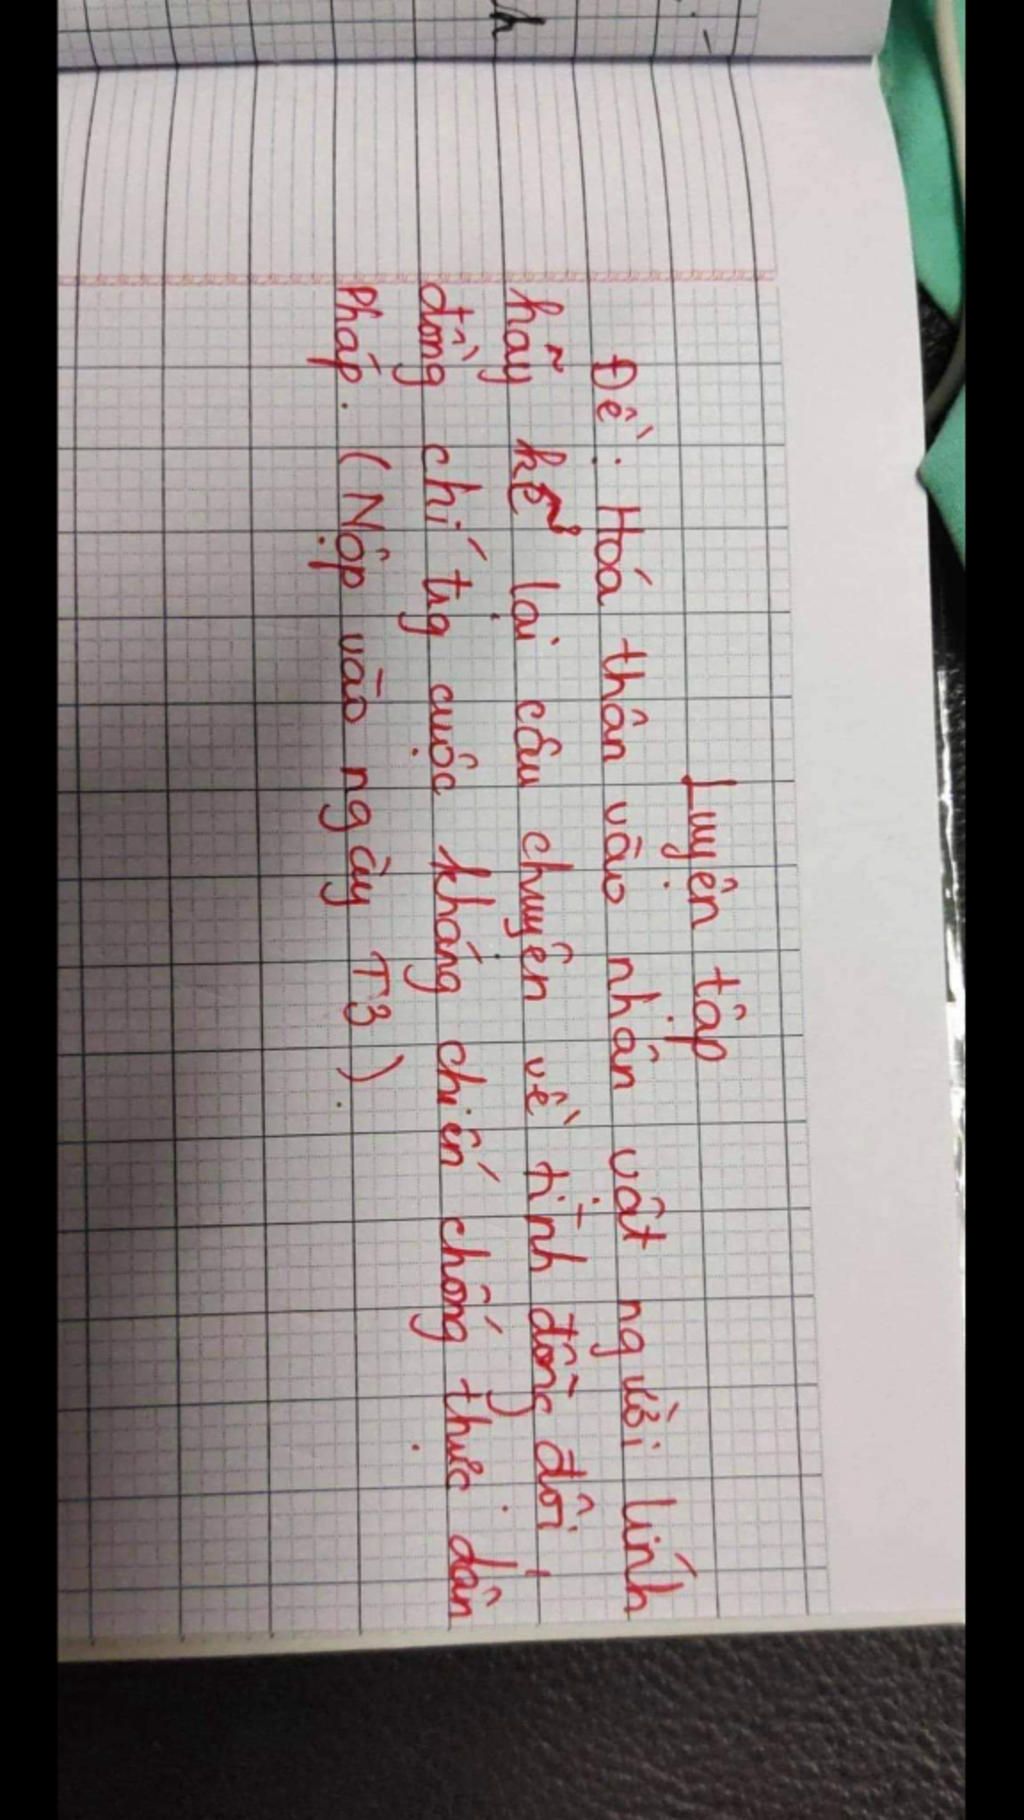 Luyện tập
Đề: Hoá thân vào nhân vật người lính
hãy kể lại câu chuyện về tình đồng đội,
đồng chí trg cuộc kháng chiến chống thực dân
Pháp. (Nộp vào ngày T3).